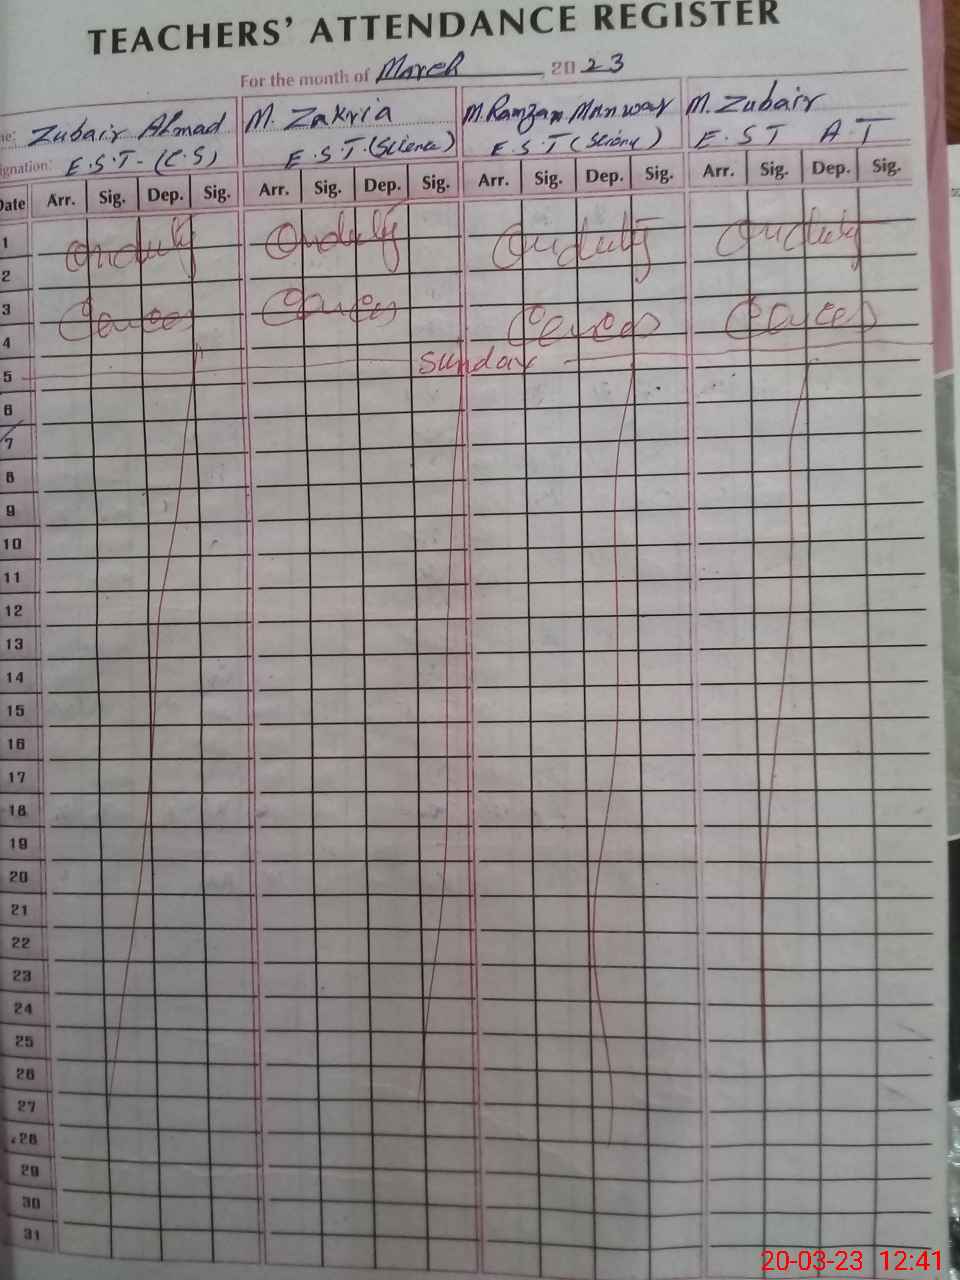 TEACHERS' ATTENDANCE REGISTER
For the month of March, 2023
me: Zubair Ahmad M. Zakria M. Ramzan M. Zubair
ignation: E.S.T-(C.S) E.S.T.(Science) E.S.T E.S.T A.T
Date Arr. Sig. Dep. Sig. Arr. Sig. Dep. Sig. Arr. Sig. Dep. Sig. Arr. Sig. Dep. Sig.
1 Onduty Onduty Onduty Onduty
2
3
4
5 Sunday
6
7
8
9
10
11
12
13
14
15
16
17
18
19
20
21
22
23
24
25
26
27
28
29
30
31
20-03-23 12:41